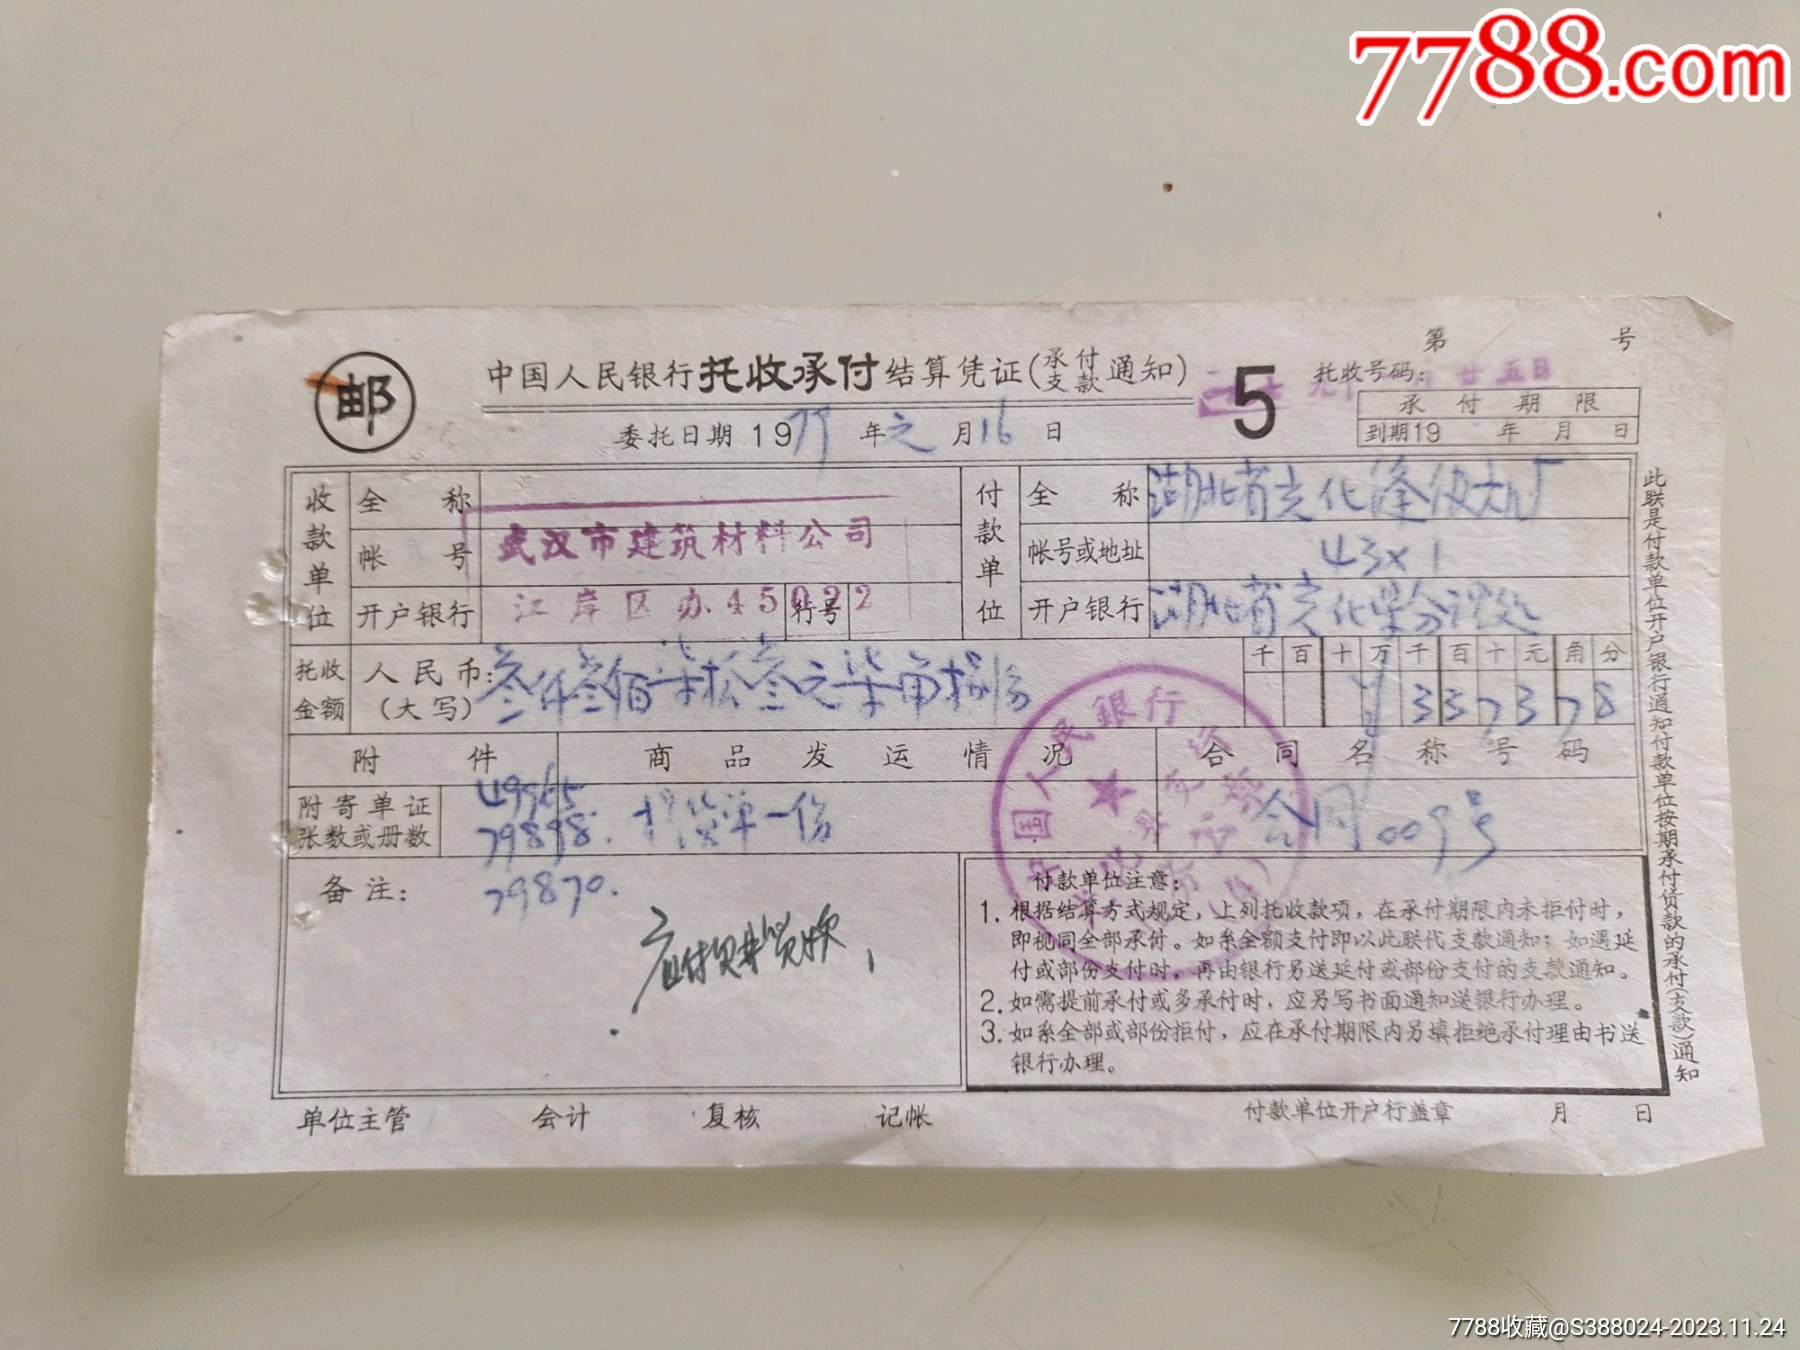 7788.com
第 号
邮
中国人民银行托收承付结算凭证(承付支款通知)
5
托收号码:
廿五日
承付期限
到期19 年 月 日
委托日期 19 年 月16日
收款单位
全称
帐号
武汉市建筑材料公司
开户银行
江岸区办.45022
行号
付款单位
全称
湖北省光化
帐号或地址
43×1
开户银行
湖北省光化
托收金额
人民币:
(大写)
叁仟叁佰柒拾叁元柒角捌分
千百十万千百十元角分
¥337378
附件
商品发运情况
合同名称号码
附寄单证
张数或册数
79898.
79870.
单一份
合同009号
中国人民银行
备注:
应付购货款
付款单位注意:
1.根据结算方式规定,上列托收款项,在承付期限内未拒付时,
即视同全部承付。如系全额支付即以此联代支款通知;如遇延
付或部份支付时,再由银行另送延付或部份支付的支款通知。
2.如需提前承付或多承付时,应另写书面通知送银行办理。
3.如系全部或部份拒付,应在承付期限内另填拒绝承付理由书送
银行办理。
此联是付款单位开户银行通知付款单位按期承付货款的承付(支款)通知
单位主管 会计 复核 记帐
付款单位开户行盖章 月 日
7788收藏@S388024-2023.11.24